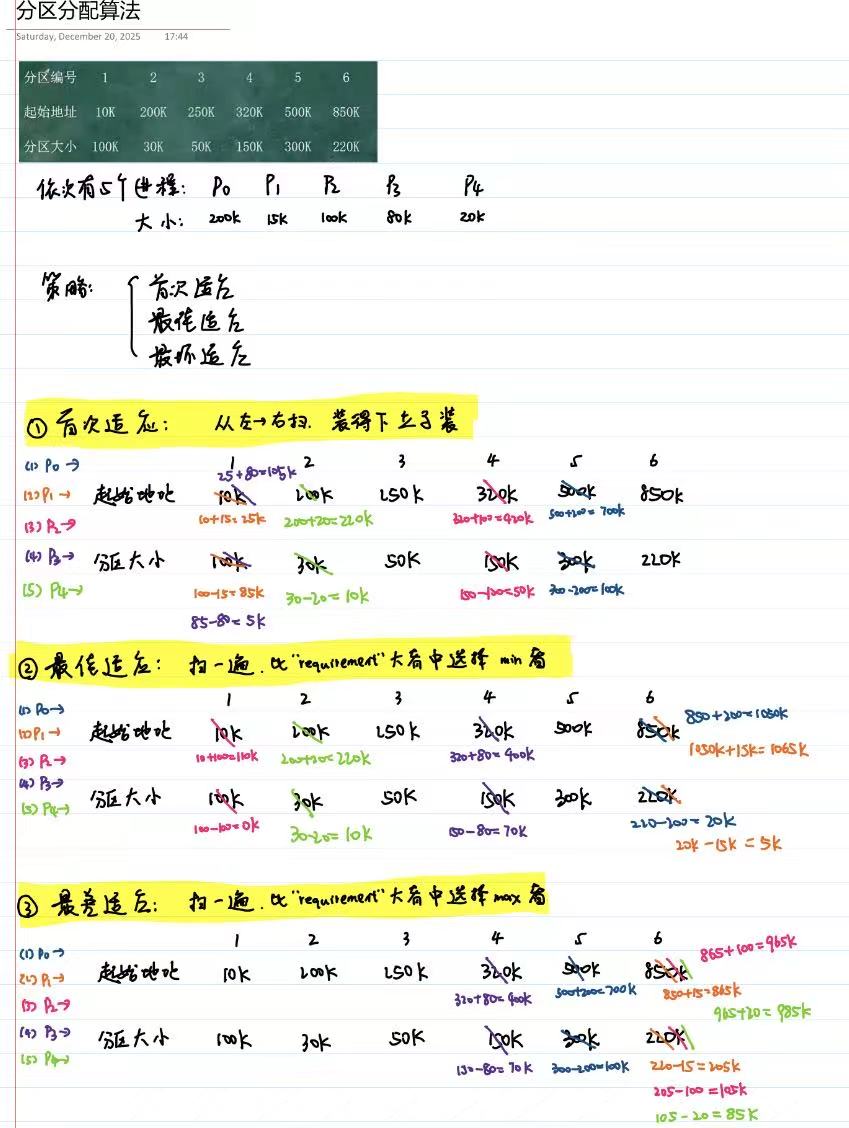 分区分配算法
Saturday, December 20, 2025 17:44
分区编号 1 2 3 4 5 6
起始地址 10K 200K 250K 320K 500K 850K
分区大小 100K 30K 50K 150K 300K 220K
依次有5个进程: P0 P1 P2 P3 P4
大小: 200k 15k 100k 80k 20k
策略:
首次适应
最佳适应
最坏适应
① 首次适应: 从左→右扫. 装得下立了装
(1) P0 → 1 2 3 4 5 6
25+80=105k
(2) P1 → 起始地址 10k 200k 250k 320k 500k 850k
(3) P2 → 10+15=25k 200+20=220k 320+100=420k 500+200=700k
(4) P3 → 分区大小 100k 30k 50k 150k 300k 220k
(5) P4 → 100-15=85k 30-20=10k 150-100=50k 300-200=100k
85-80=5k
② 最佳适应: 扫一遍. 比"requirement"大者中选择 min 者
1 2 3 4 5 6
(1) P0 → 850+200=1050k
(2) P1 → 起始地址 10k 200k 250k 320k 500k 850k
1050k+15k=1065k
(3) P2 → 10+100=110k 200+20=220k 320+80=400k
(4) P3 →
(5) P4 → 分区大小 100k 30k 50k 150k 300k 220k
100-100=0k 30-20=10k 150-80=70k 220-200=20k
20k-15k=5k
③ 最差适应: 扫一遍. 比"requirement"大者中选择 max 者
1 2 3 4 5 6
(1) P0 → 865+100=965k
(2) P1 → 起始地址 10k 200k 250k 320k 500k 850k
(3) P2 → 320+80=400k 500+200=700k 850+15=865k
965+20=985k
(4) P3 → 分区大小 100k 30k 50k 150k 300k 220k
(5) P4 → 150-80=70k 300-200=100k 220-15=205k
205-100=105k
105-20=85k